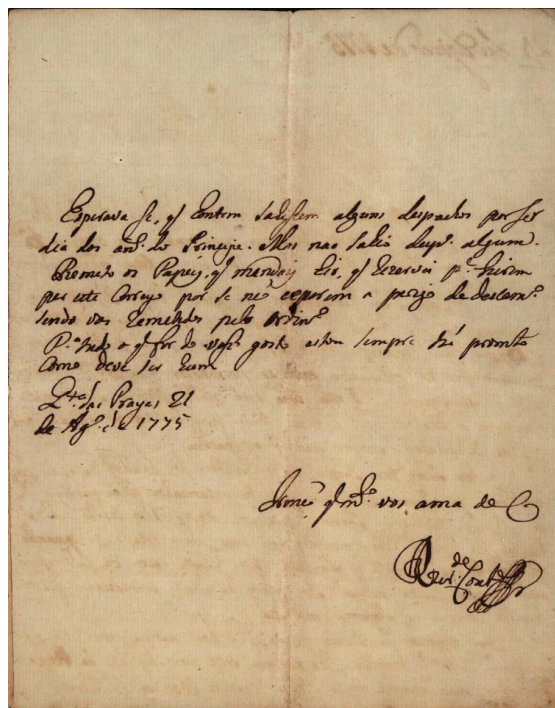 Esperava se, q̃ Contem sahissem alguns despachos por ser
dia dos an.ˢ do Principe. Mas não sahio desp.º algum.
Remeto os Papeis, q̃ p.ª hirem
por este Correyo por se não exporem a perigo de descam.º
sendo vos Remetidos pelo ordin.º
P.ª tudo o q̃ for do vosso gosto estou sempre tão prompto
Como deve ser hum
Q.ᵗᵃ das Prayas 21
de Ag.º de 1775
Irmão q̃ m.ᵗᵒ vos ama de C.